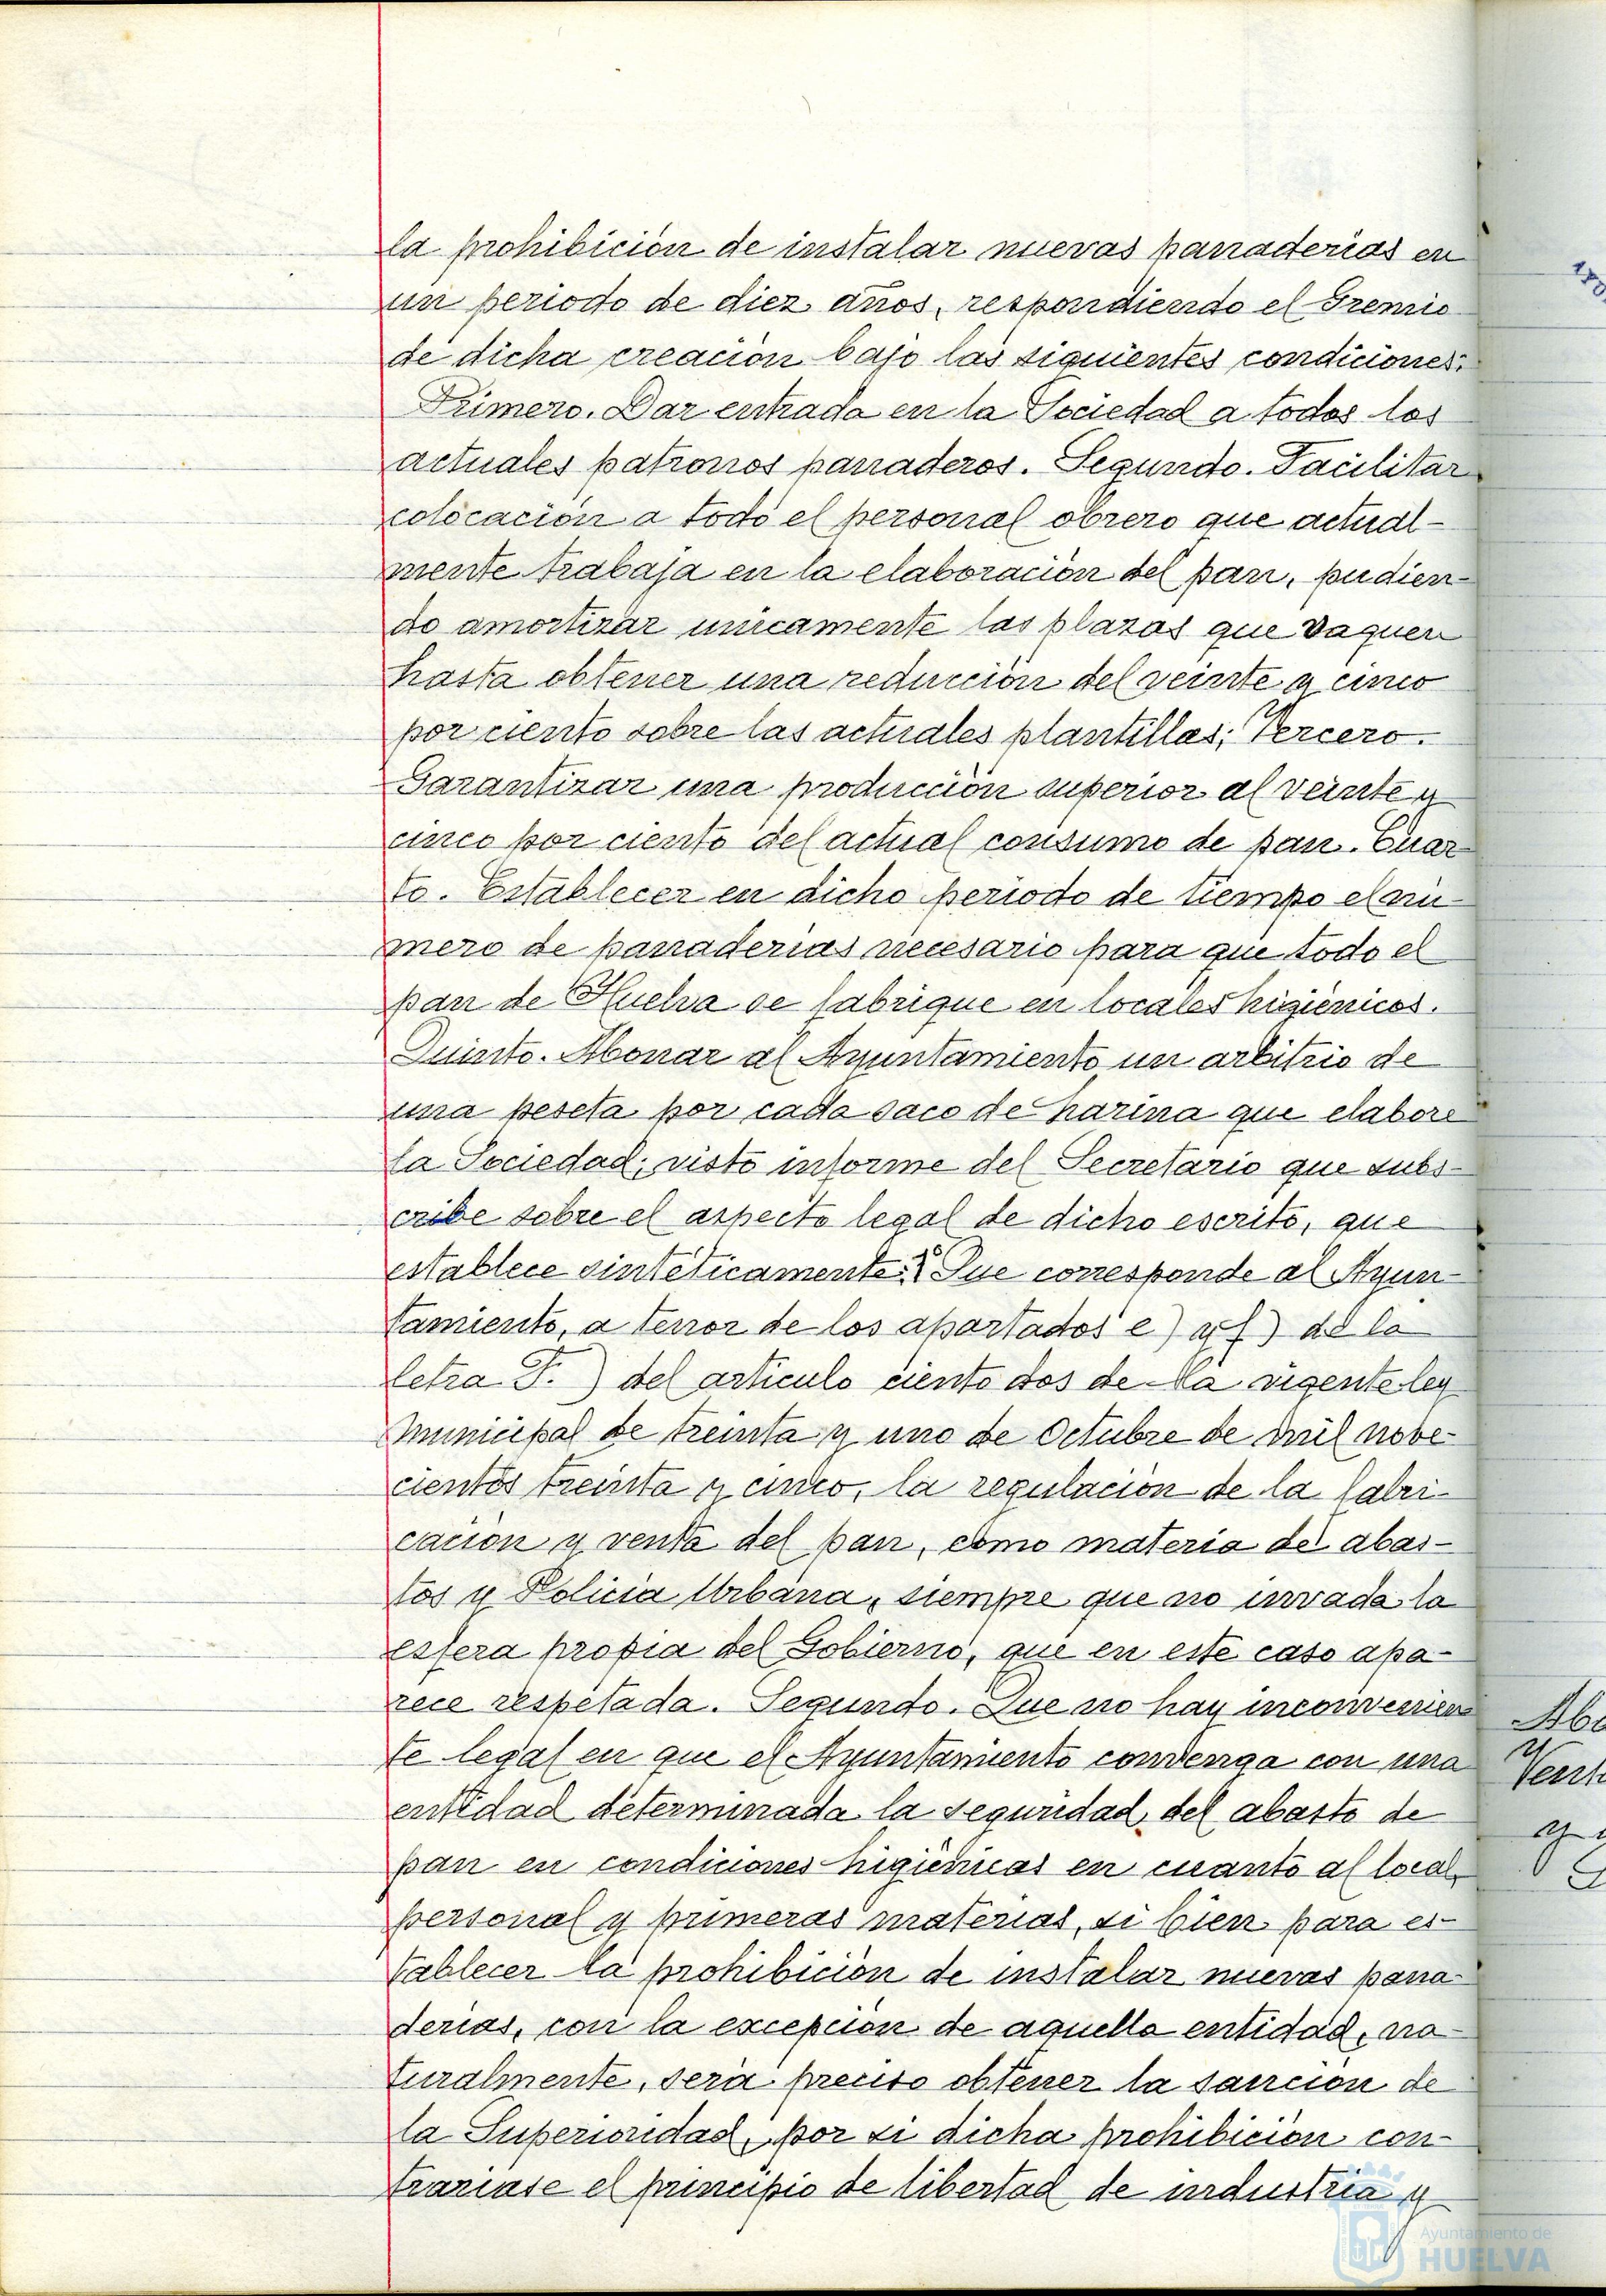 la prohibición de instalar nuevas panaderias en
un periodo de diez años, respondiendo el Gremio
de dicha creación bajo las siguientes condiciones:
Primero. Dar entrada en la Sociedad a todos los
actuales patronos panaderos. Segundo. Facilitar
colocación a todo el personal obrero que actual-
mente trabaja en la elaboración del pan, pudien-
do amortizar unicamente las plazas que vaquen
hasta obtener una reducción del veinte y cinco
por ciento sobre las actuales plantillas; Tercero.
Garantizar una producción superior al veinte y
cinco por ciento del actual consumo de pan. Cuar
to. Establecer en dicho periodo de tiempo el nú-
mero de panaderias necesario para que todo el
pan de Huelva se fabrique en locales higiénicos.
Quinto. Abonar al Ayuntamiento un arbitrio de
una peseta por cada saco de harina que elabore
la Sociedad; visto informe del Secretario que subs-
cribe sobre el aspecto legal de dicho escrito, que
establece sintéticamente: 1º Que corresponde al Ayun-
tamiento, a tenor de los apartados e) y f) de la
letra F.) del articulo ciento dos de la vigente ley
Municipal de treinta y uno de Octubre de mil nobe-
cientos treinta y cinco, la regulación de la fabri-
cación y venta del pan, como materia de abas-
tos y Policia Urbana, siempre que no invada la
esfera propia del Gobierno, que en este caso apa-
rece respetada. Segundo. Que no hay inconvenien
te legal en que el Ayuntamiento convenga con una
entidad determinada la seguridad del abasto de
pan en condiciones higiénicas en cuanto al local,
personal y primeras materias, si bien para es-
tablecer la prohibición de instalar nuevas pana-
derias, con la excepción de aquella entidad, na-
turalmente, será preciso obtener la sanción de
la Superioridad, por si dicha prohibición con-
trariase el principio de libertad de industria y
Ayuntamiento de
HUELVA